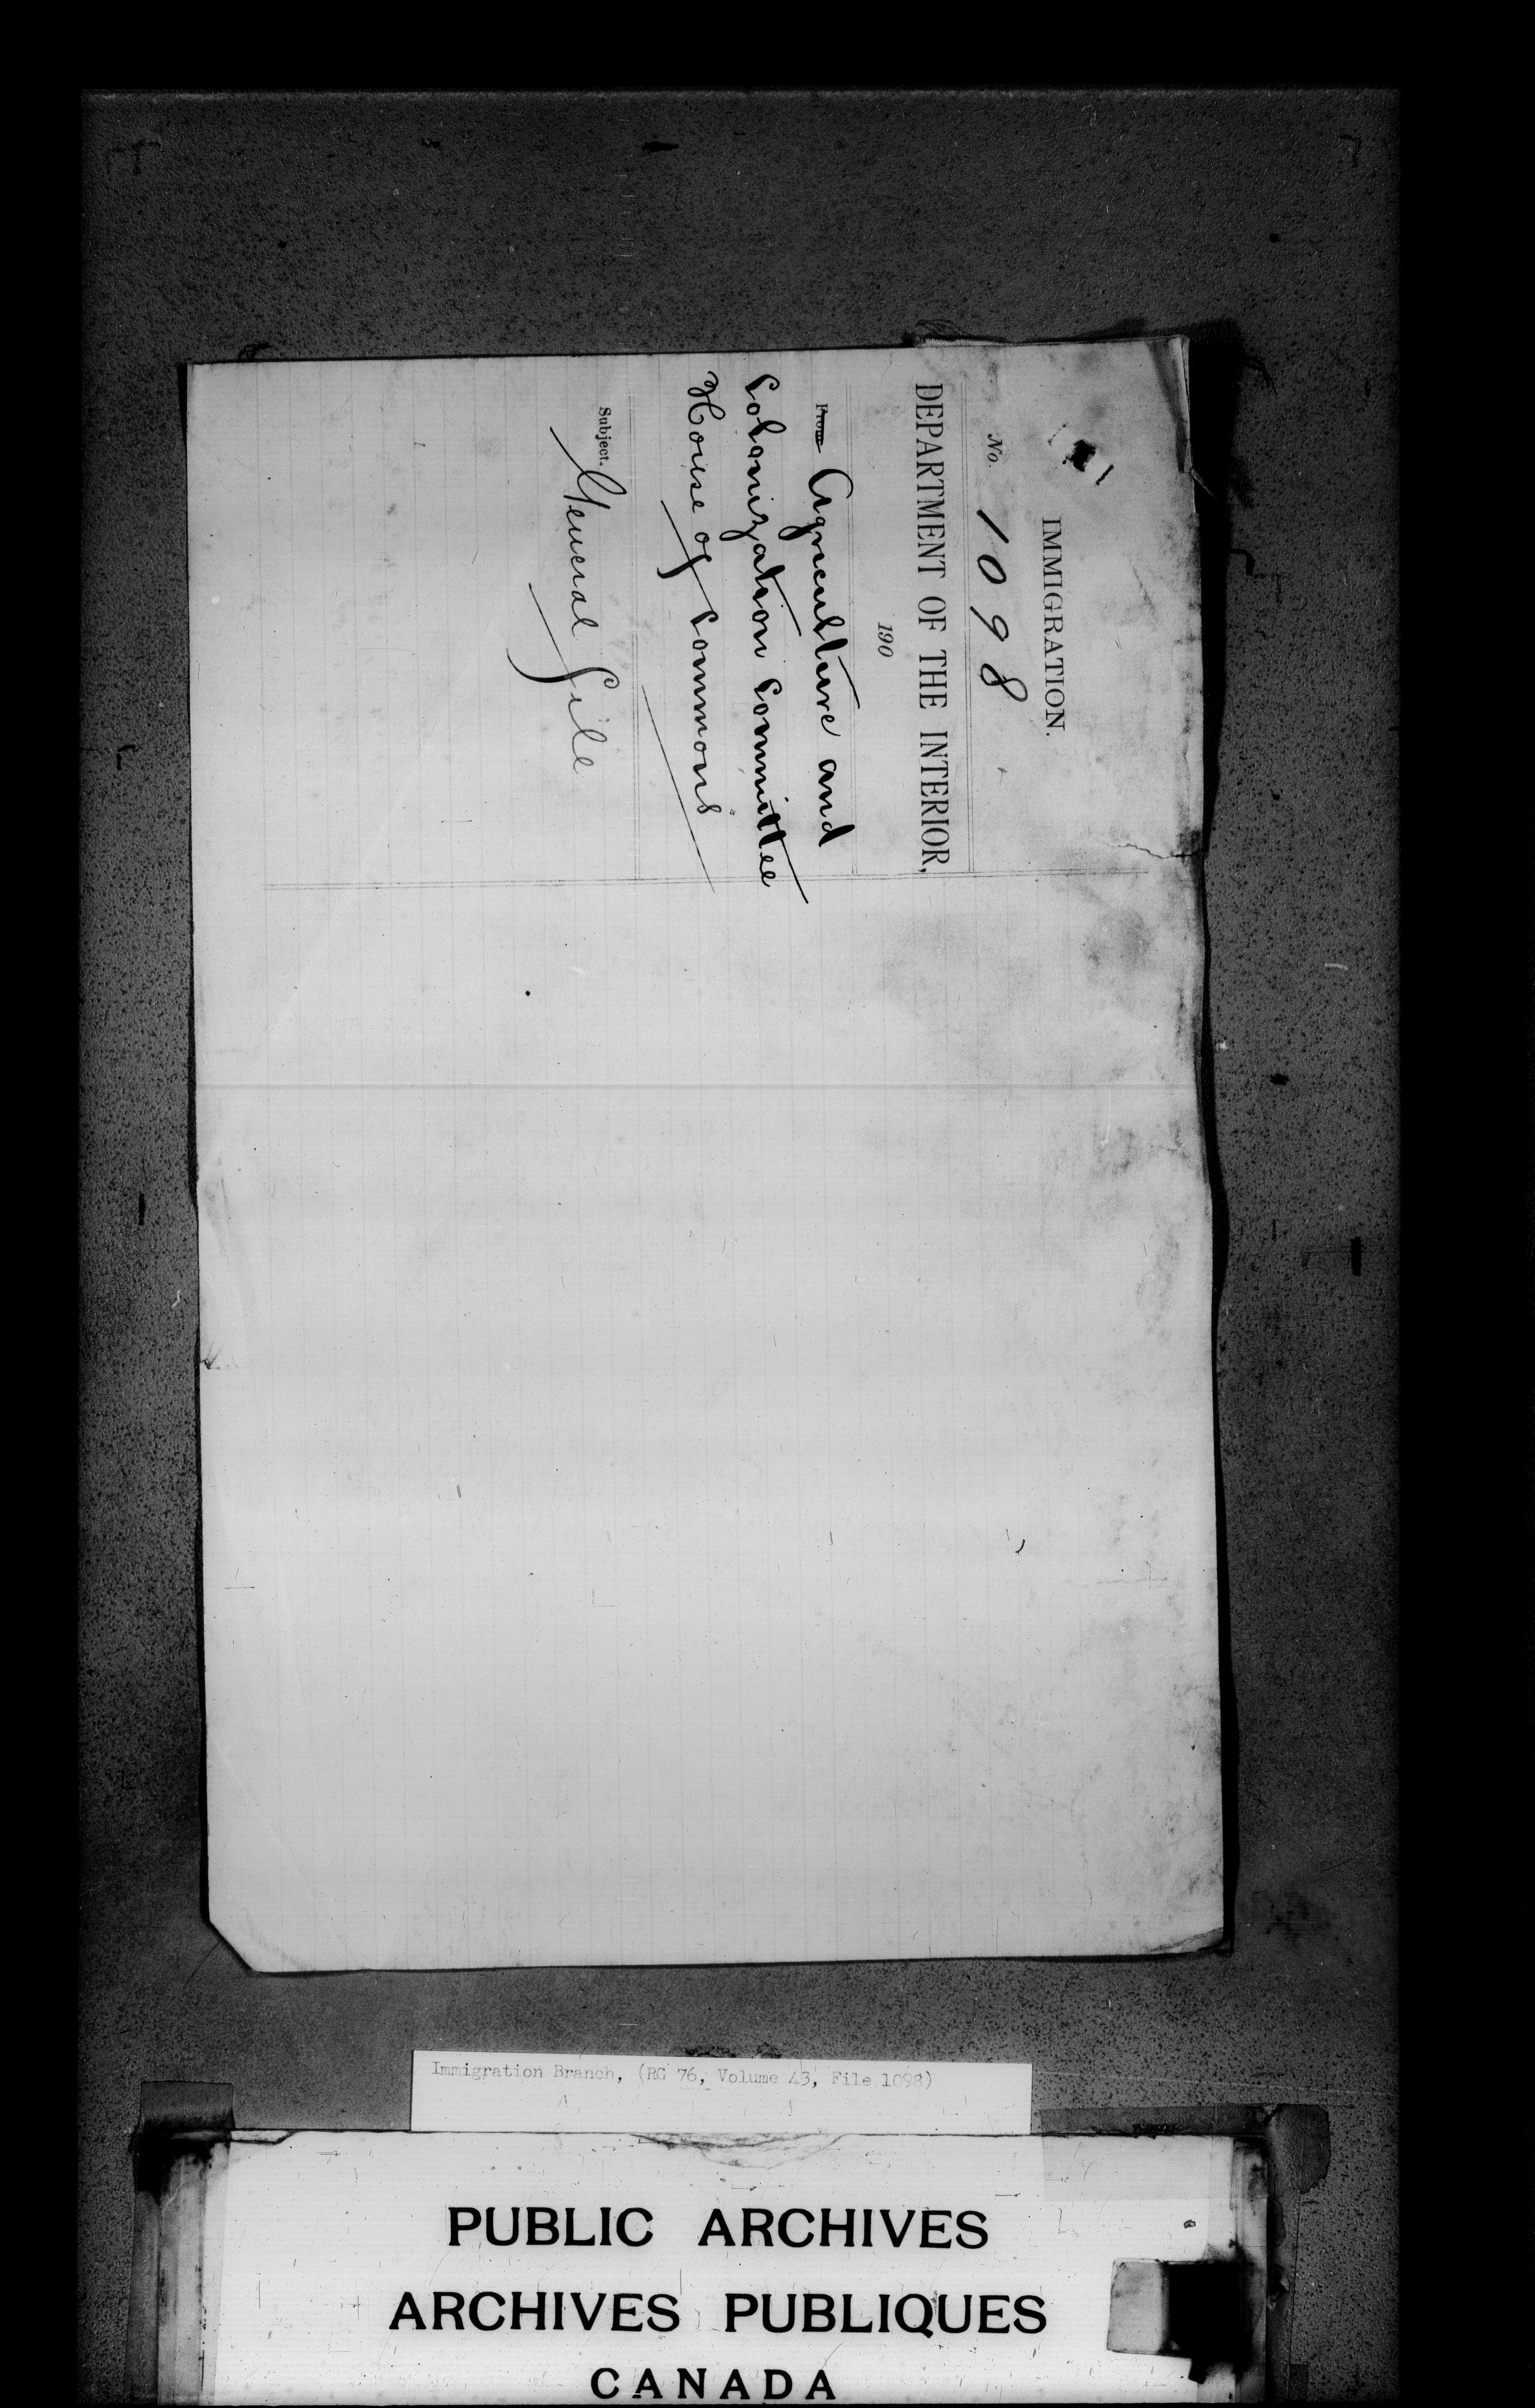 IMMIGRATION.
No. 1098
DEPARTMENT OF THE INTERIOR,
190
From Agriculture and
Colonization Committee
House of Commons
Subject. General File
Immigration Branch, (RG 76, Volume 43, File 1098)
PUBLIC ARCHIVES
ARCHIVES PUBLIQUES
CANADA